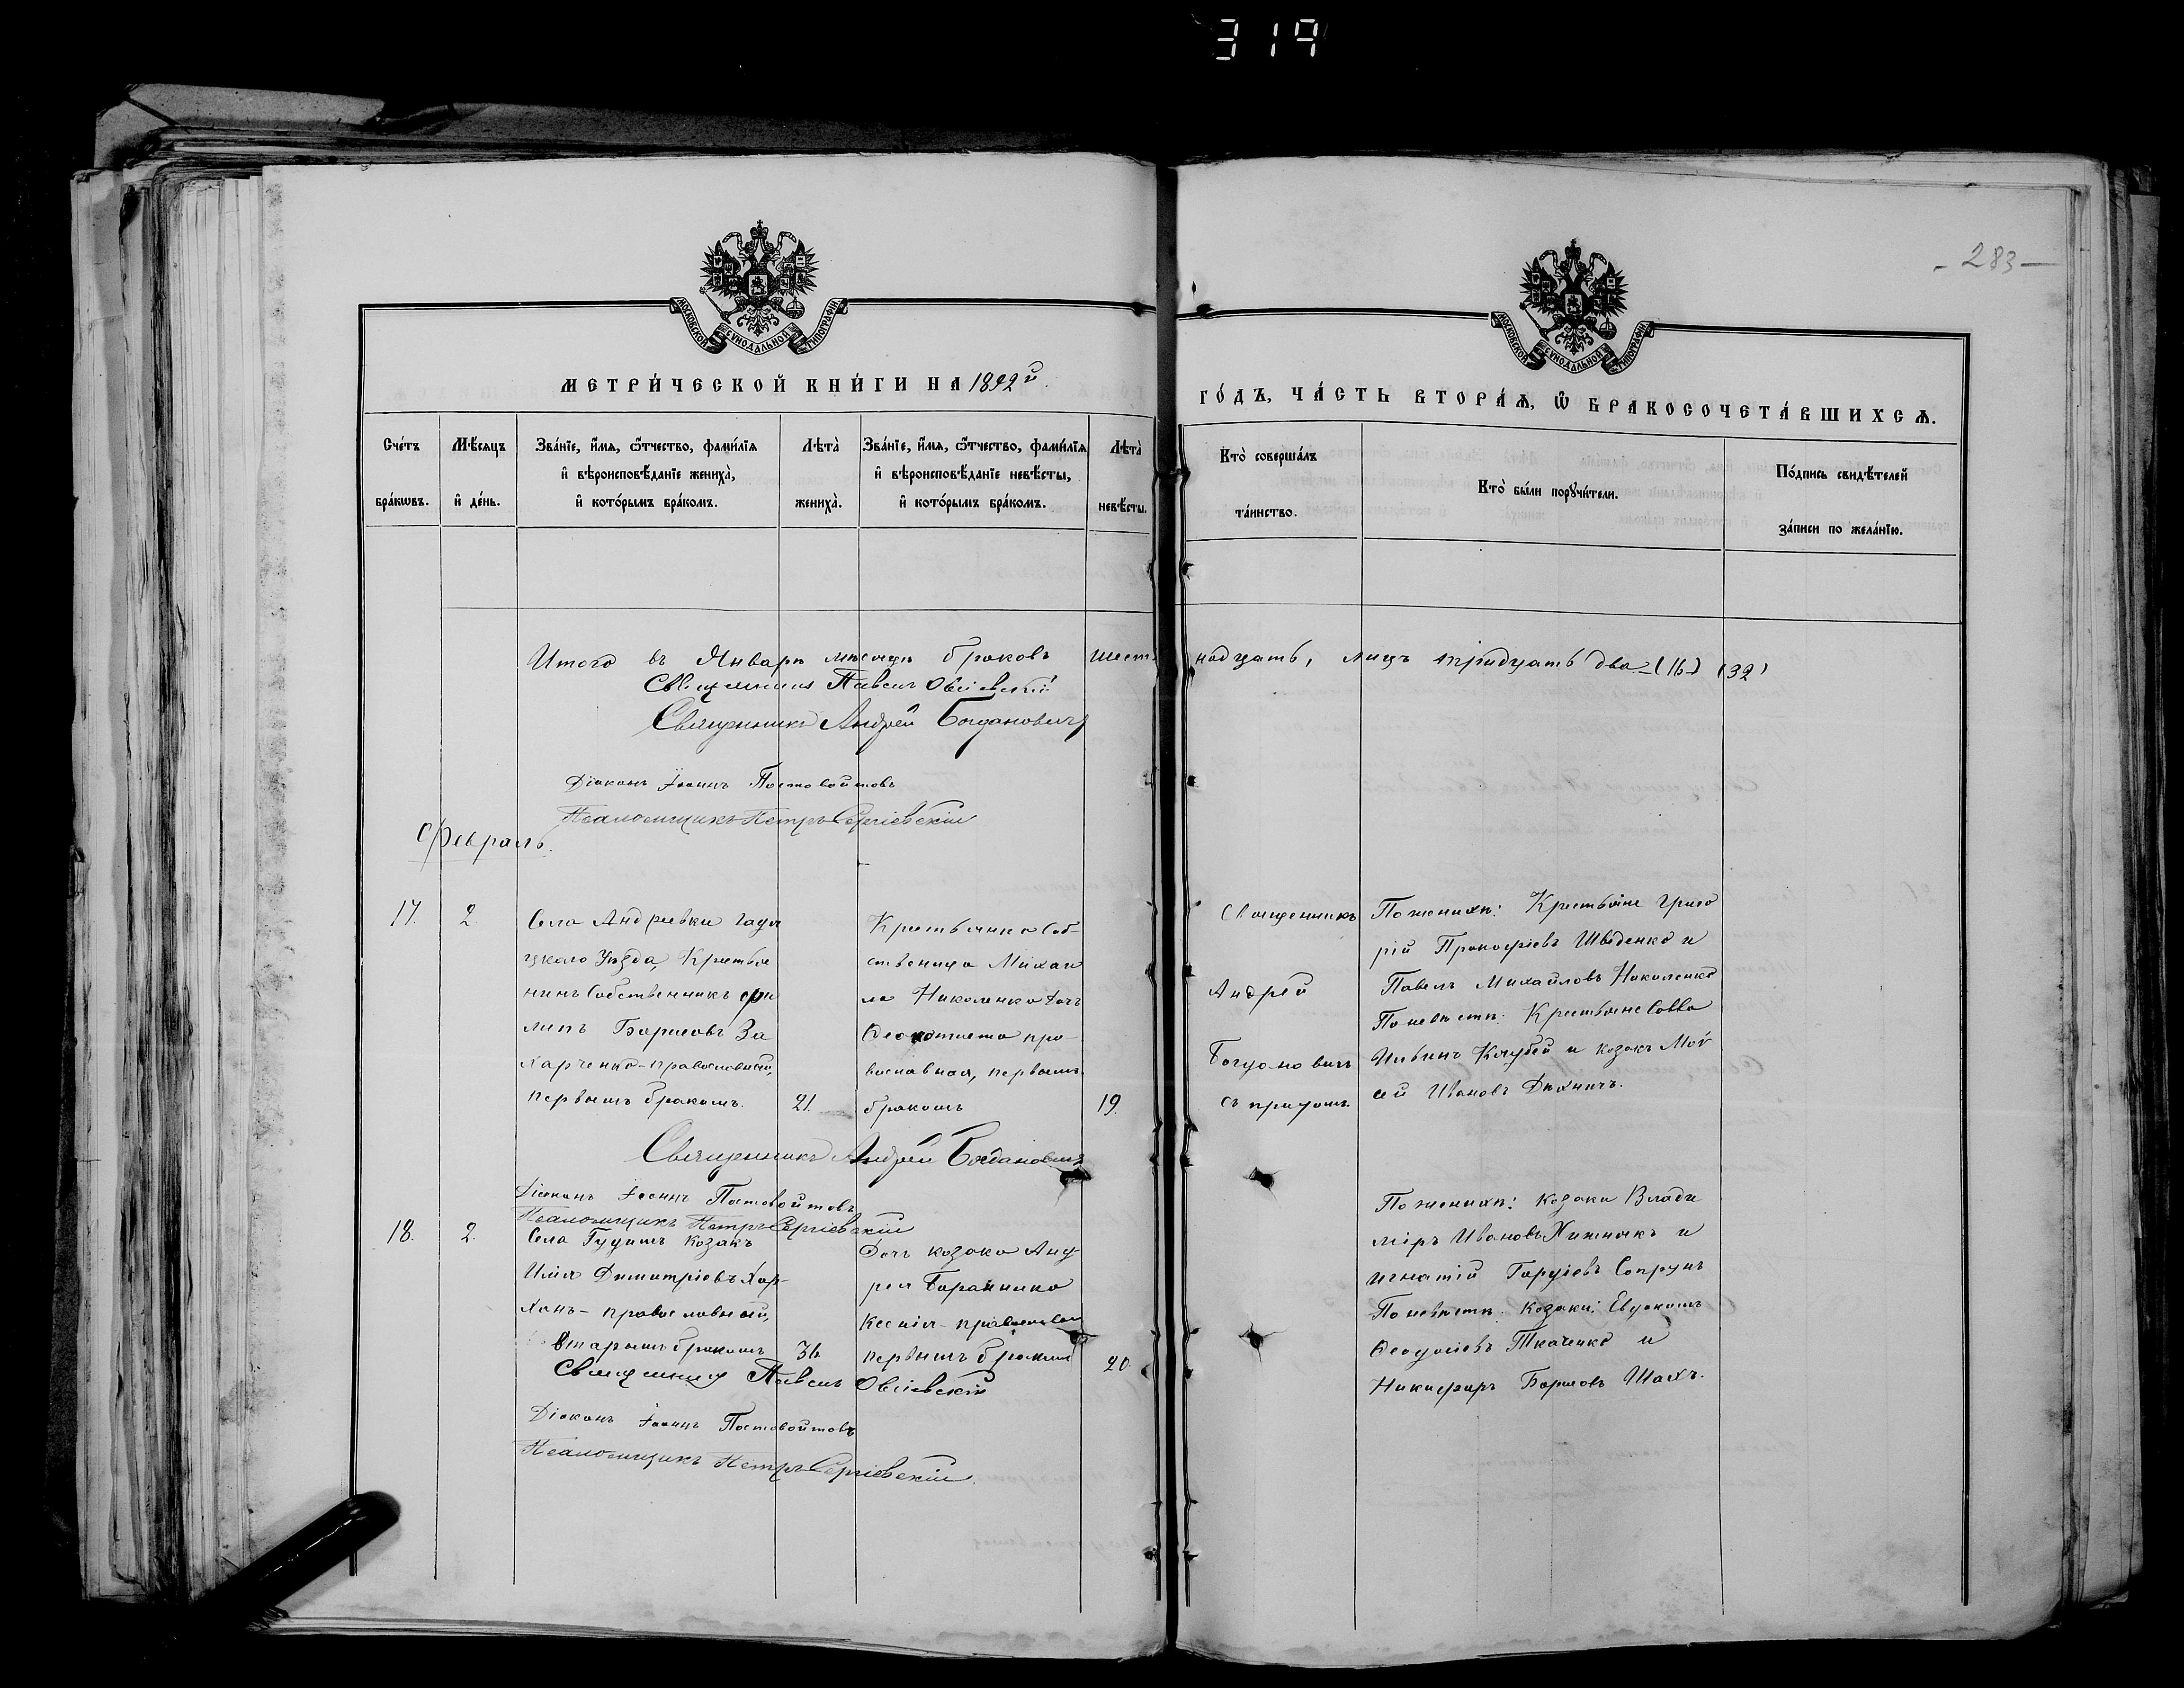 319
283
МОСКОВСКОЙ СѴНОДАЛЬНОЙ ТИПОГРАФІИ
МОСКОВСКОЙ СѴНОДАЛЬНОЙ ТИПОГРАФІИ
МЕТРИ́ЧЕСКОЙ КНИ́ГИ НА 1892й.
ГО́ДЪ, ЧА́СТЬ ВТОРА́Ѧ, Ѡ҆ БРАКОСОЧЕТА́ВШИХСѦ.
Сче́тъ бра́кѡвъ.
Мѣ́сѧцъ и҆ де́нь.
Зва́нїе, и҆́мѧ, ѻ҆́тчество, фами́лїѧ
и҆ вѣроисповѣ́данїе жениха̀,
и҆ кото́рымъ бра́комъ.
Лѣта̀ жениха̀.
Зва́нїе, и҆́мѧ, ѻ҆́тчество, фами́лїѧ
и҆ вѣроисповѣ́данїе невѣ́сты,
и҆ кото́рымъ бра́комъ.
Лѣта̀ невѣ́сты.
Кто̀ соверша́лъ
та́инство.
Кто̀ бы́ли порꙋчи́тели.
По́дпись свидѣ́телей
за́писи по жела́нїю.
Итого въ Январѣ мѣсяцѣ браковъ шест надцать, лицъ тридцать два (16) (32)
Священникъ Павелъ Овсіевскій
Священникъ Андрей Богдановичъ
Діаконъ Іоаннъ Постовойтовъ
Псаломщикъ Петръ Сергіевскій
Февраль.
17.
2.
Села Андреевки Гадя
цкаго Уѣзда, Крестья
нинъ Собственникъ Фи
липъ Борисовъ За
харченко-православный,
первымъ бракомъ.
21.
Крестьянка Соб-
ственица Михаи
ла Николенка дочь
Феоктиста пра-
вославная, первымъ
бракомъ
19.
Священникъ
Андрей
Богдановичъ
съ причтомъ.
По женихѣ: Крестьяне Григо
рій Прокофіевъ Шведенко и
Павелъ Михайловъ Николенко
По невѣстѣ: Крестьяне Савва
Ильинъ Кочубей и козакъ Мои
сей Ивановъ Дихничъ.
Священникъ Андрей Богдановичъ
Діаконъ Іоаннъ Постовойтовъ
Псаломщикъ Петръ Сергіевскій
18.
2.
Села козакъ
Илія Димитріевъ Хар-
ханъ - православный,
вторымъ бракомъ
36
Дочь козака Анд
рея
Ксенія - православн
первымъ бракомъ
20.
По женихѣ: козаки Влади
міръ Ивановъ Хижнякъ и
Игнатій Гордіевъ Сопрунъ
По невѣстѣ: Козаки: Евдокимъ
Феодосіевъ Ткаченко и
Никифоръ Борисовъ Шахъ.
Священникъ Павелъ Овсіевскій
Діаконъ Іоаннъ Постовойтовъ
Псаломщикъ Петръ Сергіевскій.